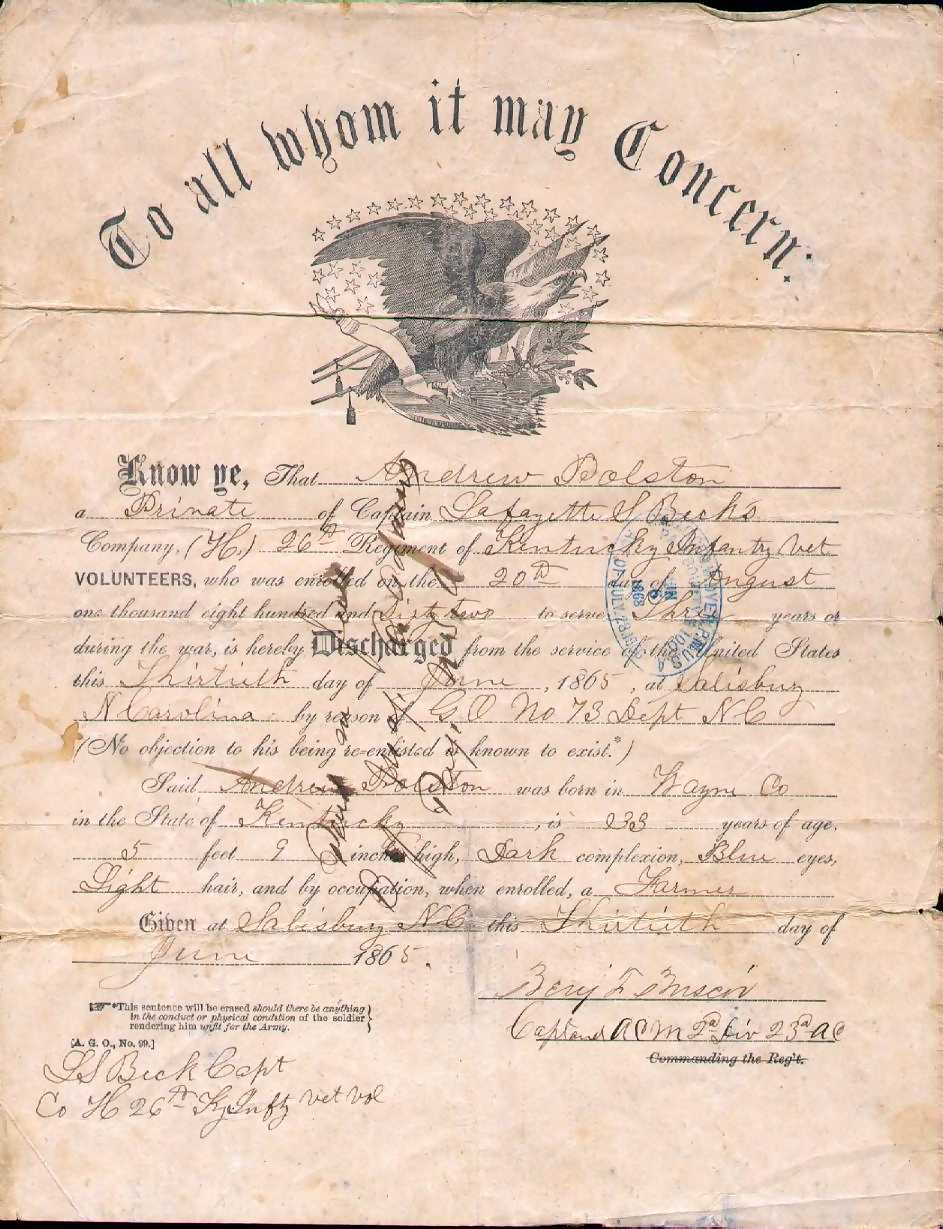 To all whom it may Concern:
Know ye, That Andrew Bolston
a Private of Captain Lafayette S Becks
Company, (H,) 26th Regiment of Kentucky Infantry Vet
VOLUNTEERS, who was enrolled on the 20th day of August
one thousand eight hundred and Sixty two to serve Three years or
during the war, is hereby Discharged from the service of the United States
this Thirtieth day of June, 1865, at Salisbury
N Carolina by reason of G.O No 73 Dept N C
(No objection to his being re-enlisted is known to exist.*)
Said Andrew Bolston was born in Wayne Co
in the State of Kentucky, is 23 years of age,
5 feet 9 inches high, Dark complexion, Blue eyes,
Light hair, and by occupation, when enrolled, a Farmer
Given at Salisbury N.C. this Thirtieth day of
June 1865.
*This sentence will be erased should there be anything
in the conduct or physical condition of the soldier
rendering him unfit for the Army.
[A. G. O., No. 99.]
L S Beck Capt
Co H 26th Ky Infty vet vol
Benj F Briscoe
Capt and A C M 2d Div 23d A C
Commanding the Reg't.
Paid in full